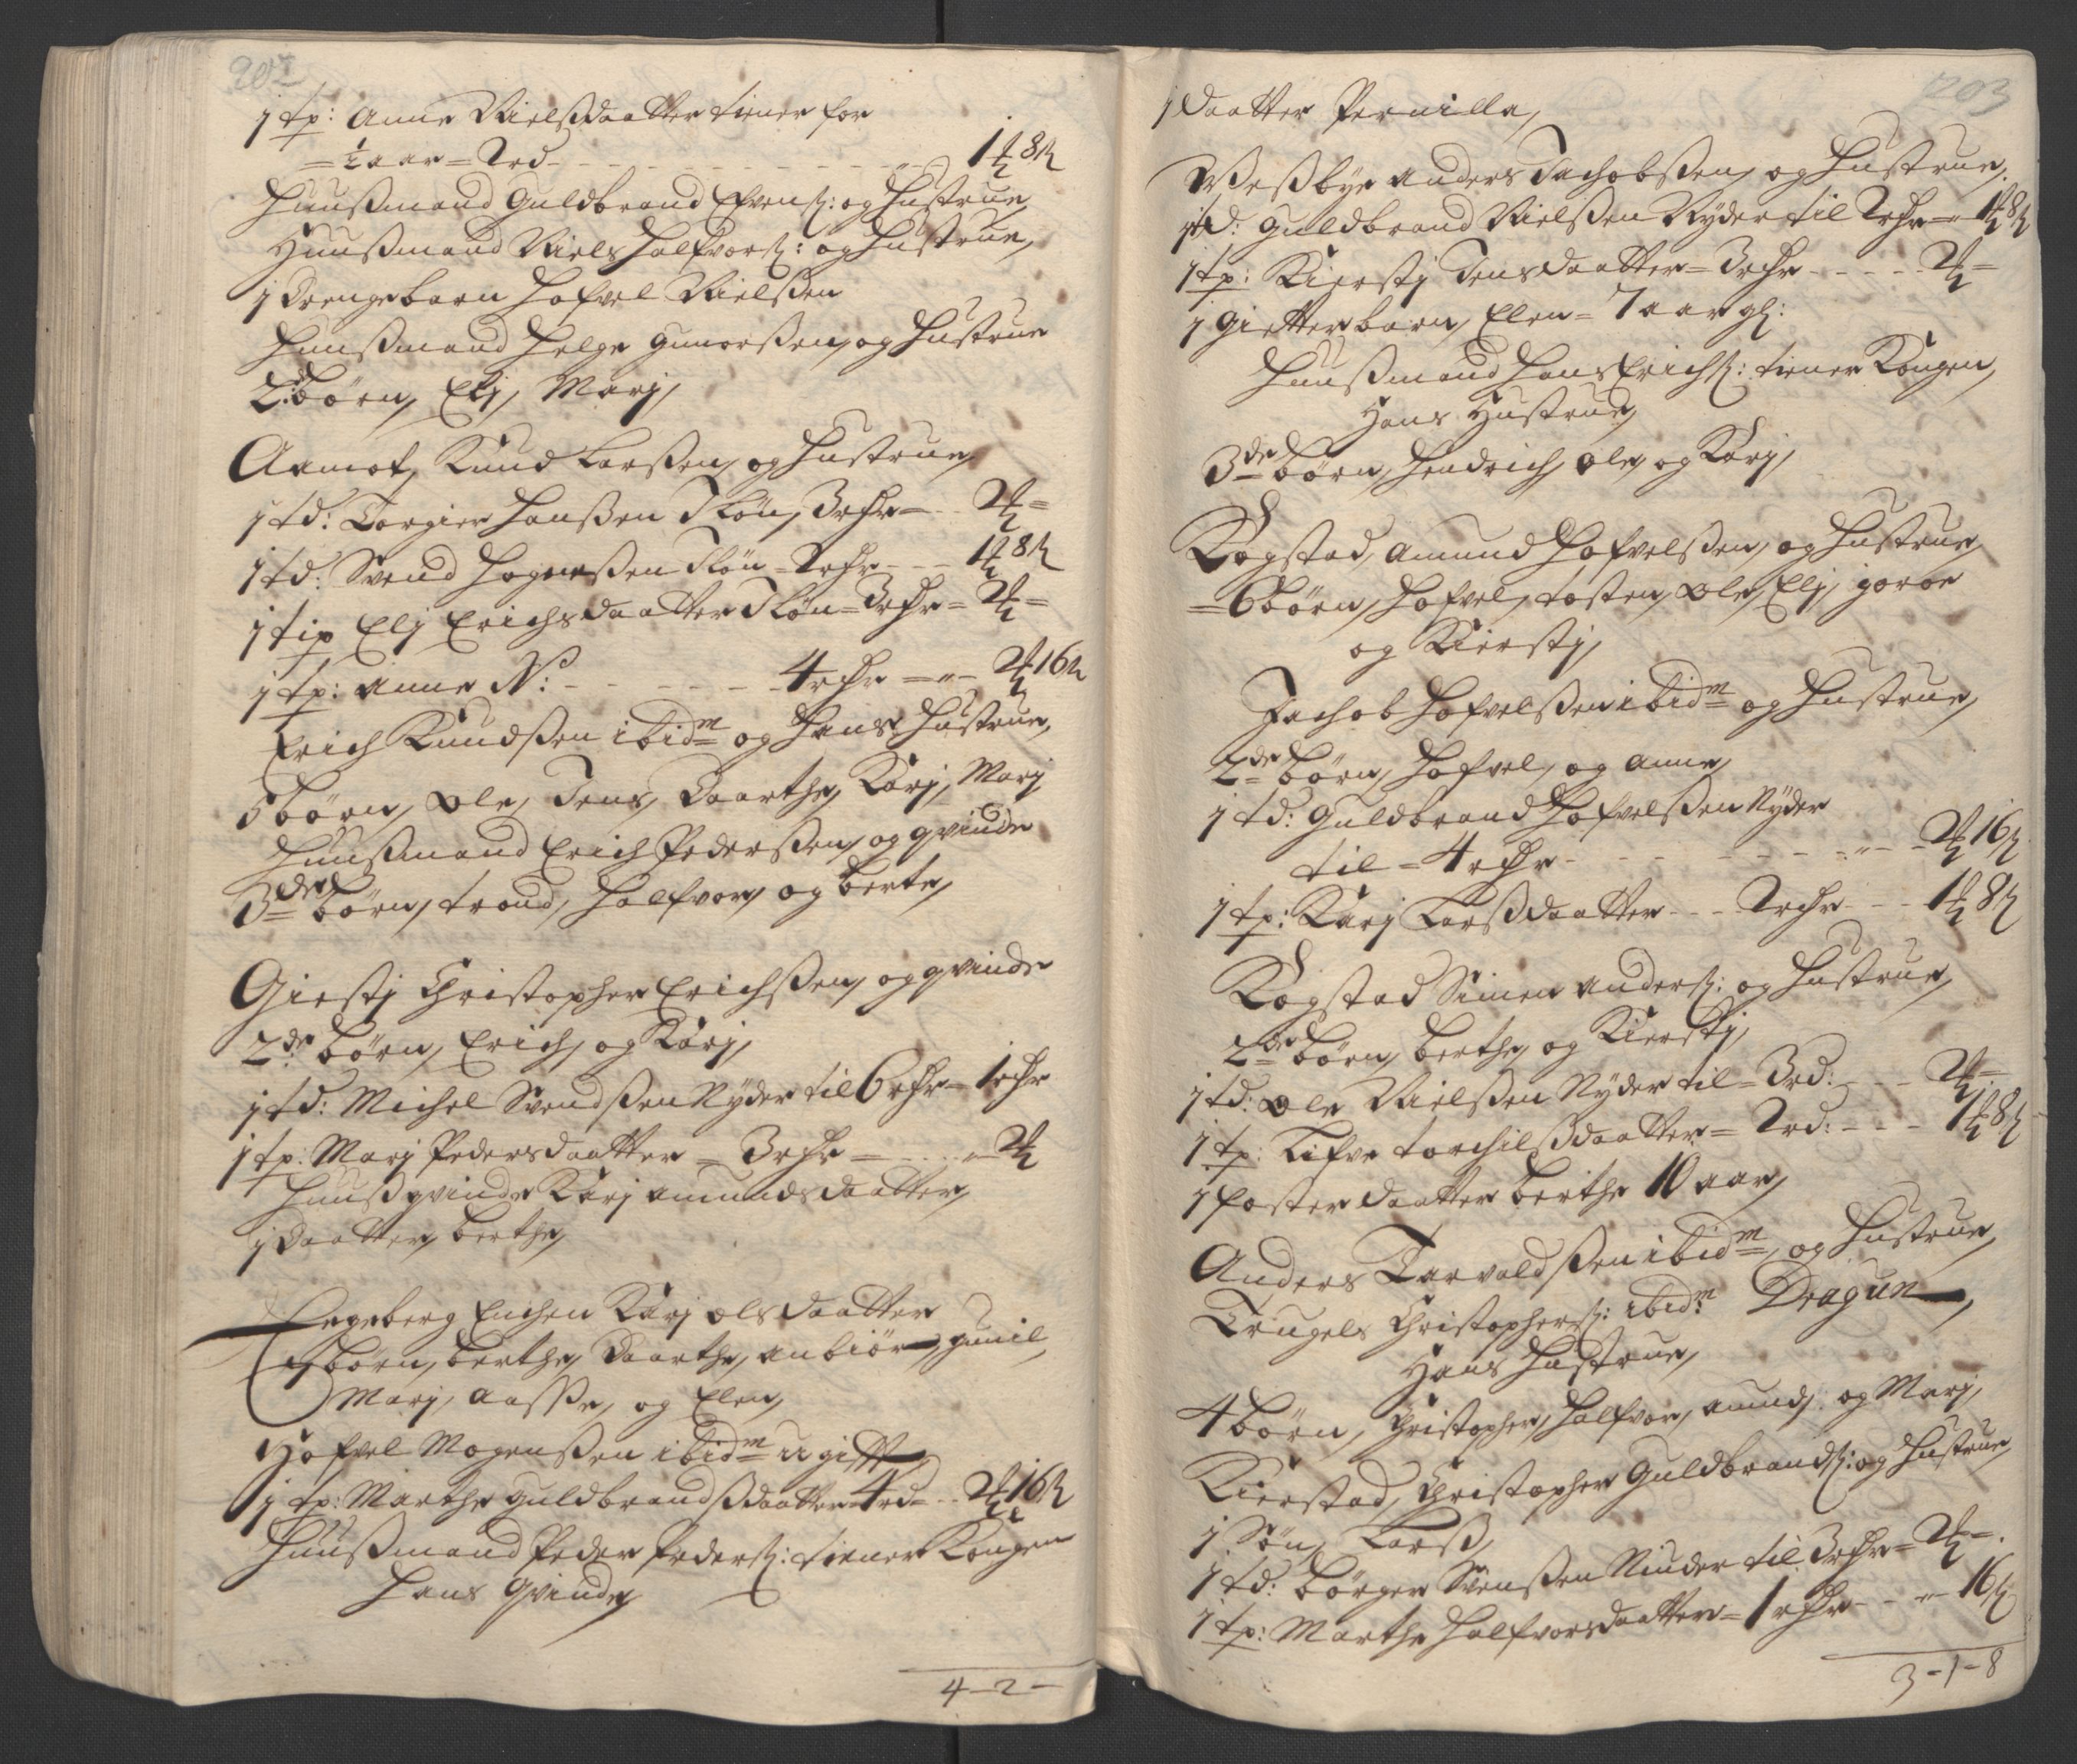 202
1 tp: Anne Nielsdaatter tiener for
= ½ aar = 2rd - - - 1 ½ 8 ß
Huusmand Guldbrand Efvens: og Hustrue,
Huusmand Niels Halfvors: og Hustrue,
1 drengebarn Hofvel Nielsen
Huusmand Helge Gunorsen, og Hustrue
2: børn, Eli, Marj,
Aamot, Knud Larsen, og Hustrue,
1 td: Torgier Hansen Løn, 3rdr = - 2 ½ =
1 td: Svend Hogensen Løn - 2rdr - - 1 ½ 8 ß
1 tip Elj Erichsdaatter Løn = 3rdr = 2 ½ =
1 tp: Anne N: - - - - 4rdr = - 2 ½ 16 ß
Erich Knudsen ibidm og Hans Hustrue,
5 børn, Ole, Jens, Daarthe, Karj, Marj
Huusmand Erich Pedersen, og qvinde
3de børn, trond, Halfvor, og berte,
Giestj Christopher Erichsen, og qvinde
2de børn, Erich, og Karj,
1 td: Michel Svendsen Nyder til 6rdr = 1rdr
1 tp: Marj Pedersdaatter = 3rdr = - - 2 ½
Huusqvinde Karj Amundsdaatter,
1 daatter, berthe,
Engeberg Enchen Karj Olsdaatter
7 børn, berthe, Daarthe, Anbiør, Gunil,
Marj, Aasse, og Elen,
Hofvel Mogensen ibidm ugift
1 tp: Marthe Guldbrandsdaatter 4rd = - 2 ½ 16 ß
Huusmand Peder Peders: tiener Kongen
Hans Qvinde,
4-2-
203
1 daatter Pernilla,
Wessbye Anders Jachobsen, og Hustrue,
1 td: Guldbrand Nielsen Nyder til 2rdr = 1 ½ 8 ß
1 tp: Kierstj Jensdaatter = 3rdr - - - 2 ½ =
1 gietterbarn, Elen = 7 aar gl:
Huusmand Hans Erichs: tiener Kongen,
Hans Hustrue,
3de børn, Hendrich, Ole, og Karj,
Kogstad, Amund Hofvelsen, og Hustrue,
= 6 børn, Hofvel, tosten, Ole, Elj, goroe
og Kierstj,
Jachob Hofvelsen ibidm og Hustrue,
2de børn, Hofvel, og Anne,
1 td: Guldbrand Hofvelsen Nyder
til = 4rdr - - - - 2 ½ 16 ß
1 tp: Karj Larsdaatter - - 2rdr - - 1 ½ 8 ß
Kogstad Simen Anders: og Hustrue,
2de børn, berthe, og Kierstj,
1 td: Ole Nielsen Nyder til = 3rd: - - 2 ½ =
1 tp: Lifve torchilsdaatter = 2rd: - - - 1 ½ 8 ß
1 foster daatter berthe 10 aar,
Anders Tarvaldsen ibidm, og Hustrue,
Trugels Christophers: ibidm Dragun,
Hans Hustrue,
4 børn, Christopher, Halfvor, Amund, og Marj,
Kierstad, Christopher Guldbrands: og Hustrue,
1 Søn, Lars,
1 td: børger Svensen Niuder til 3rdr = 2 ½ =
1 tp: Marthe Halfvorsdaatter = 1rdr - - 16 ß
3-1-8